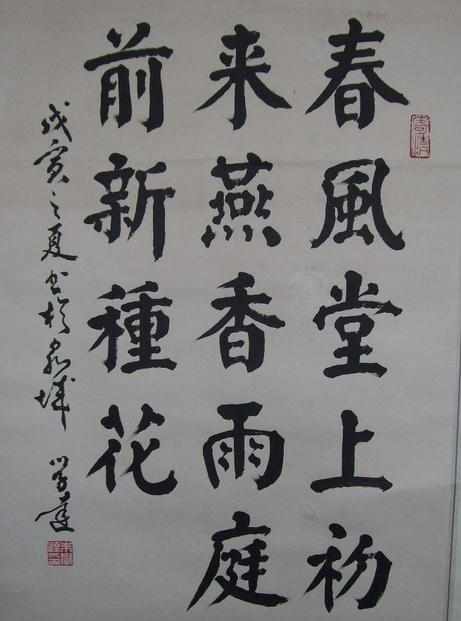 春風堂上初
来燕香雨庭
前新種花
戊寅之夏书於泉城